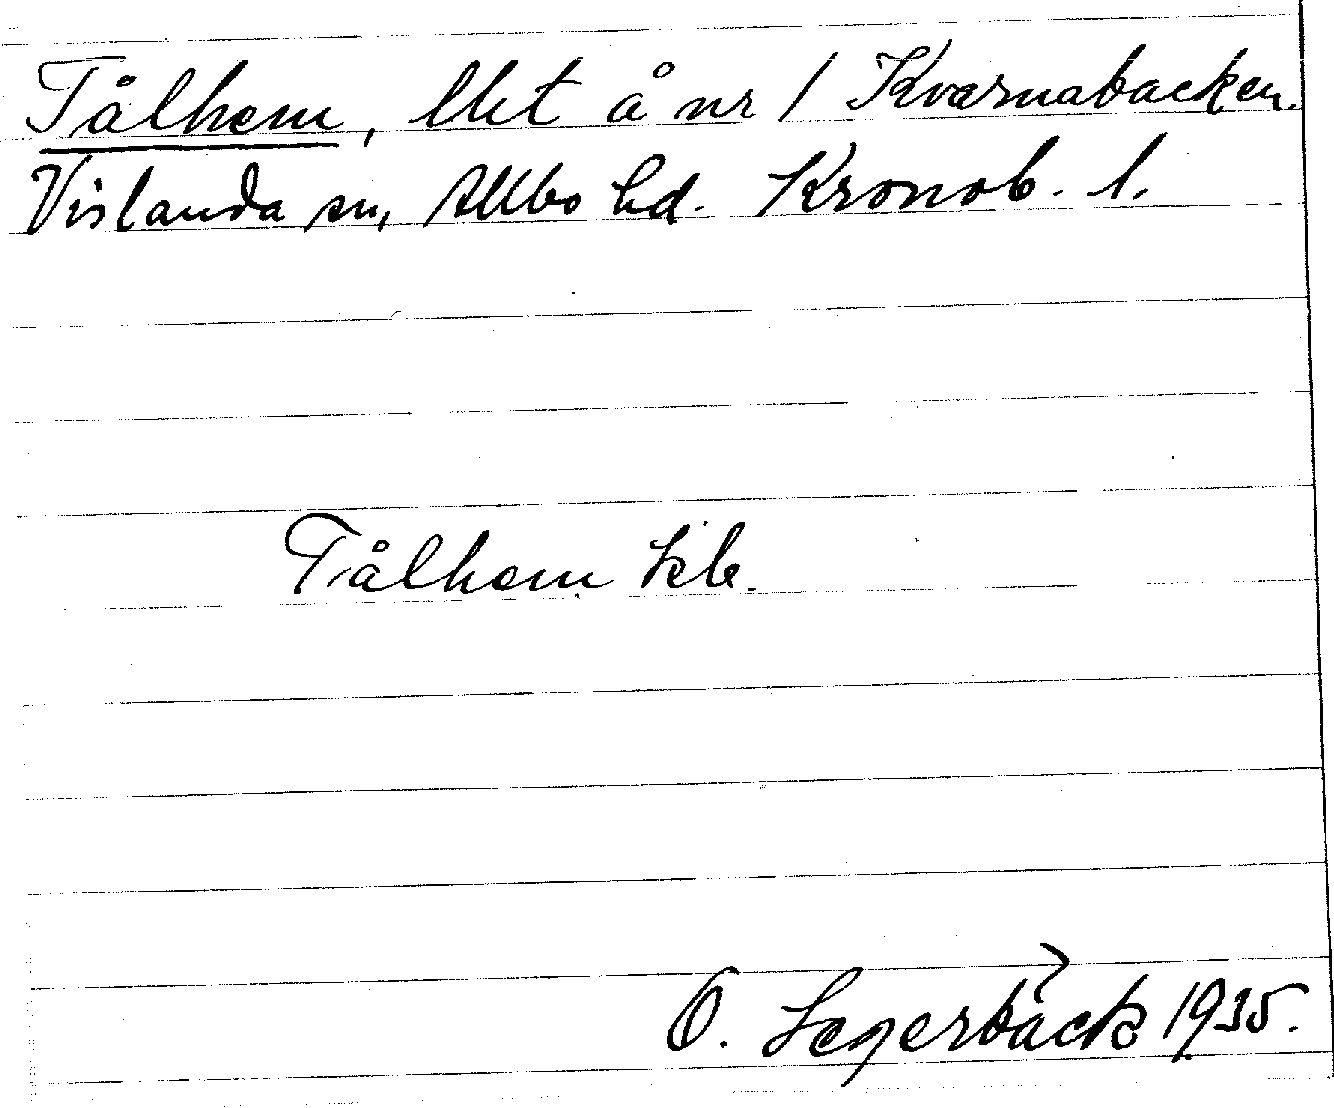 Tålhem, lht å nr 1 Kvarnabacken.
Vislanda sn, Allbo hd. Kronob. l.
Tålhem kb.
O. Segerbäck 1935.